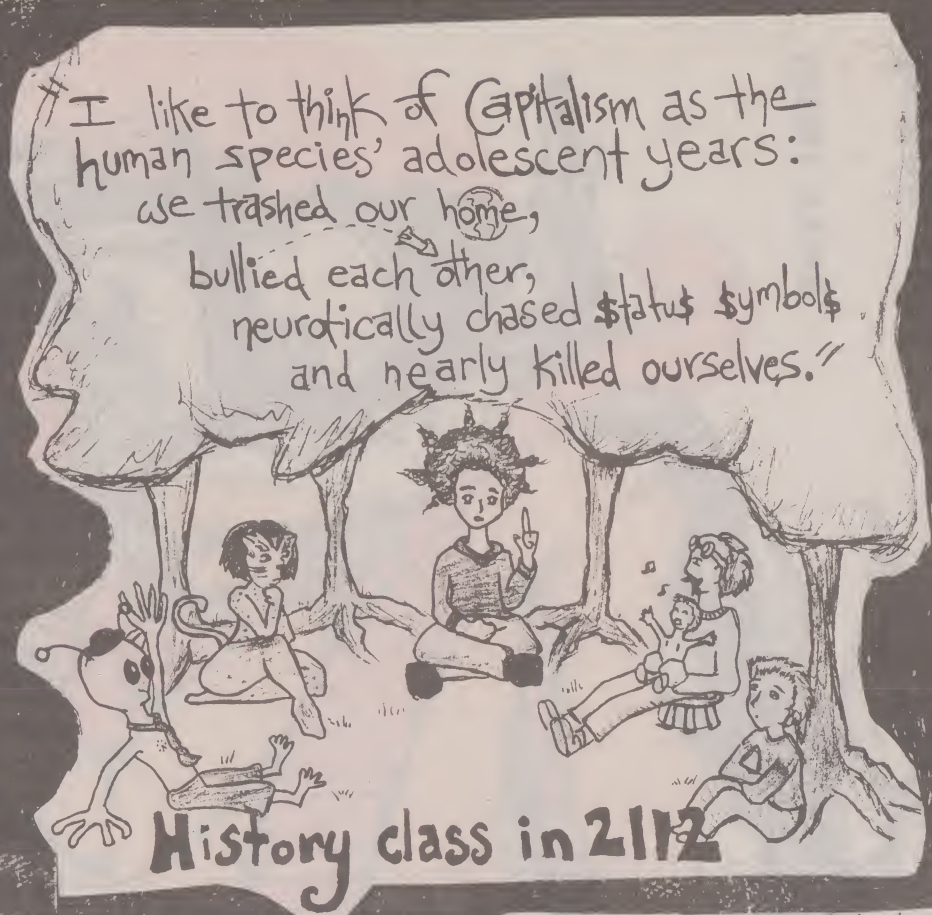 I like to think of Capitalism as the
human species' adolescent years:
we trashed our home,
bullied each other,
neurotically chased $tatu$ $ymbol$
and nearly killed ourselves."
History class in 2112